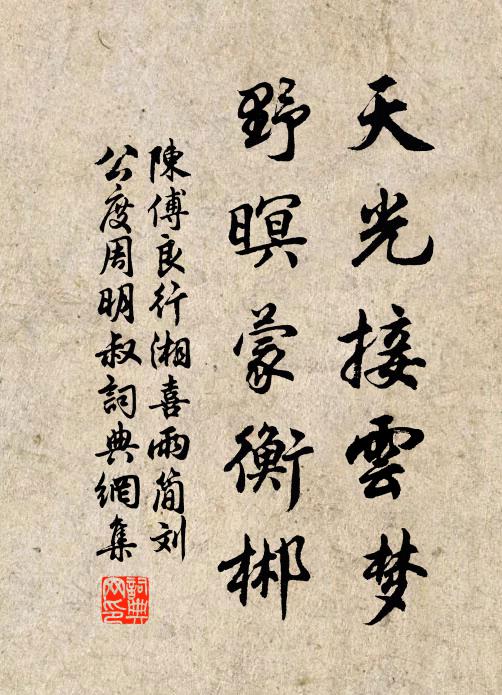 天光接雲梦
野暝蒙衡郴
陳傅良行湘喜雨簡刘
公度周明叔詞典網集
詞典网印